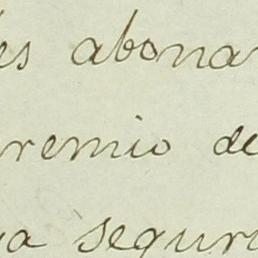 es abona
remio de
a segur